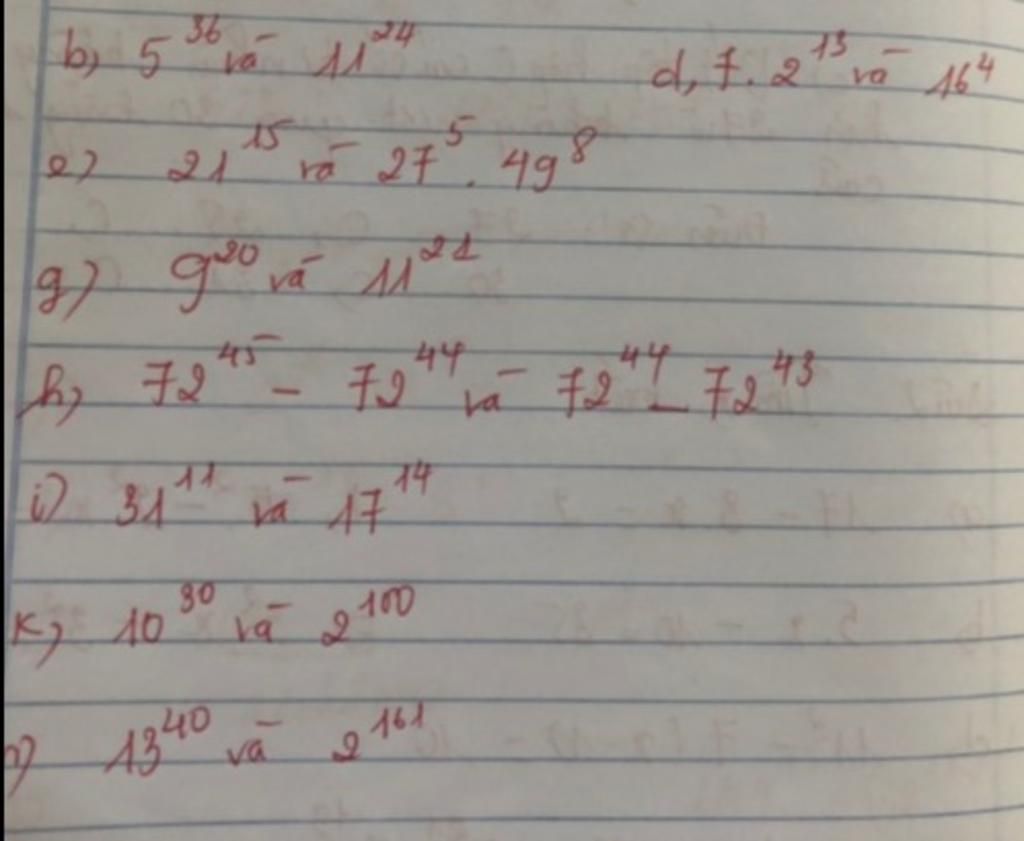 b, 5^36 và 11^24 d, 7. 2^13 và 16^4
e) 21^15 và 27^5 . 49^8
g) 9^20 và 11^21
h, 72^45 - 72^44 và 72^44 - 72^43
i) 31^11 và 17^14
k, 10^30 và 2^100
13^40 và 2^161